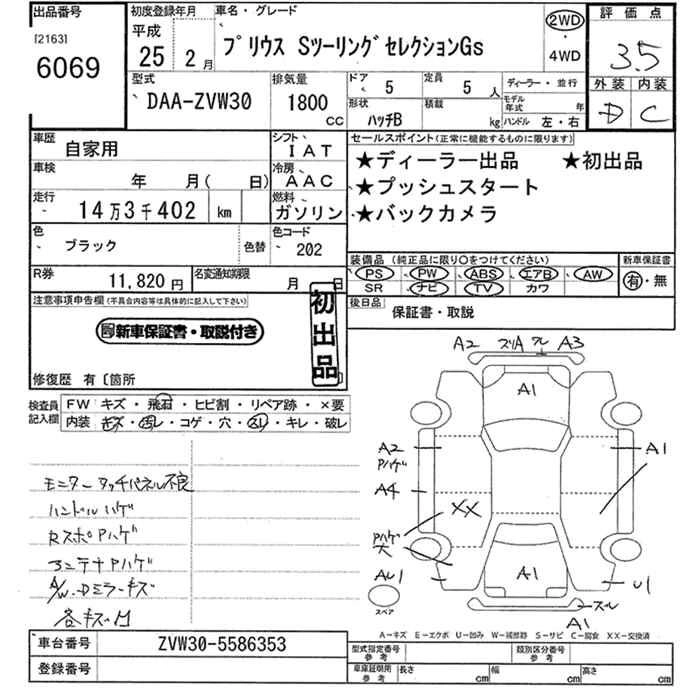 出品番号
[2163]
6069
初度登録年月
平成
25 2月
車名・グレード
プリウス SツーリングセレクションGs
2WD
・
4WD
評価点
3.5
外装 内装
D C
型式
DAA-ZVW30
排気量
1800
CC
ドア
5
定員
5 人
形状
ハッチB
積載
kg
ディーラー・並行
モデル年式 年
ハンドル 左・右
車歴
自家用
シフト
IAT
車検
年 月( 日)
冷房
AAC
走行
14万3千402 km
燃料
ガソリン
色
ブラック
色替
色コード
202
R券
11,820円
名変通知期限
月 日
セールスポイント(正常に機能するものに限ります)
★ディーラー出品 ★初出品
★プッシュスタート
★バックカメラ
装備品(純正品に限り○をつけてください)
PS ・ PW ・ ABS ・ エアB ・ AW
SR ナビ TV カワ
新車保証書
有・無
後日品
保証書・取説
注意事項申告欄(不具合内容等は具体的に記入して下さい)
新車保証書・取説付き
初出品
修復歴 有〔箇所
検査員記入欄
FW キズ・飛石・ヒビ割・リペア跡・×要
内装 キズ・汚レ・コゲ・穴・スレ・キレ・破レ
モニタータッチパネル不良
ハンドルハゲ
RスポPハゲ
アンテナPハゲ
A/W・Dミラーキズ
各キズ凹
A2 ズリA ワレ A3
A1
A2
Pハゲ
A1
A4
XX
Pハゲ
大
AU1
A1
U1
スペア
スレ
A1
A－キズ E－エクボ U－凹み W－補修跡 S－サビ C－腐食 XX－交換済
車台番号
ZVW30-5586353
登録番号
型式指定番号
参考
類別区分番号
参考
車庫証明用
参考
長さ cm
幅 cm
高さ cm